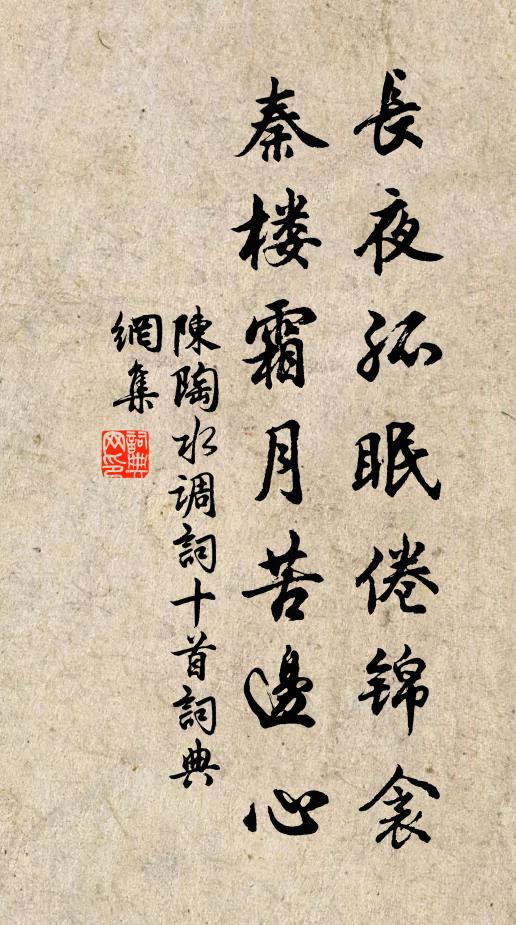 長夜孤眠倦錦衾
秦楼霜月苦邊心
陳陶水调詞十首詞典
網集
詞典网印